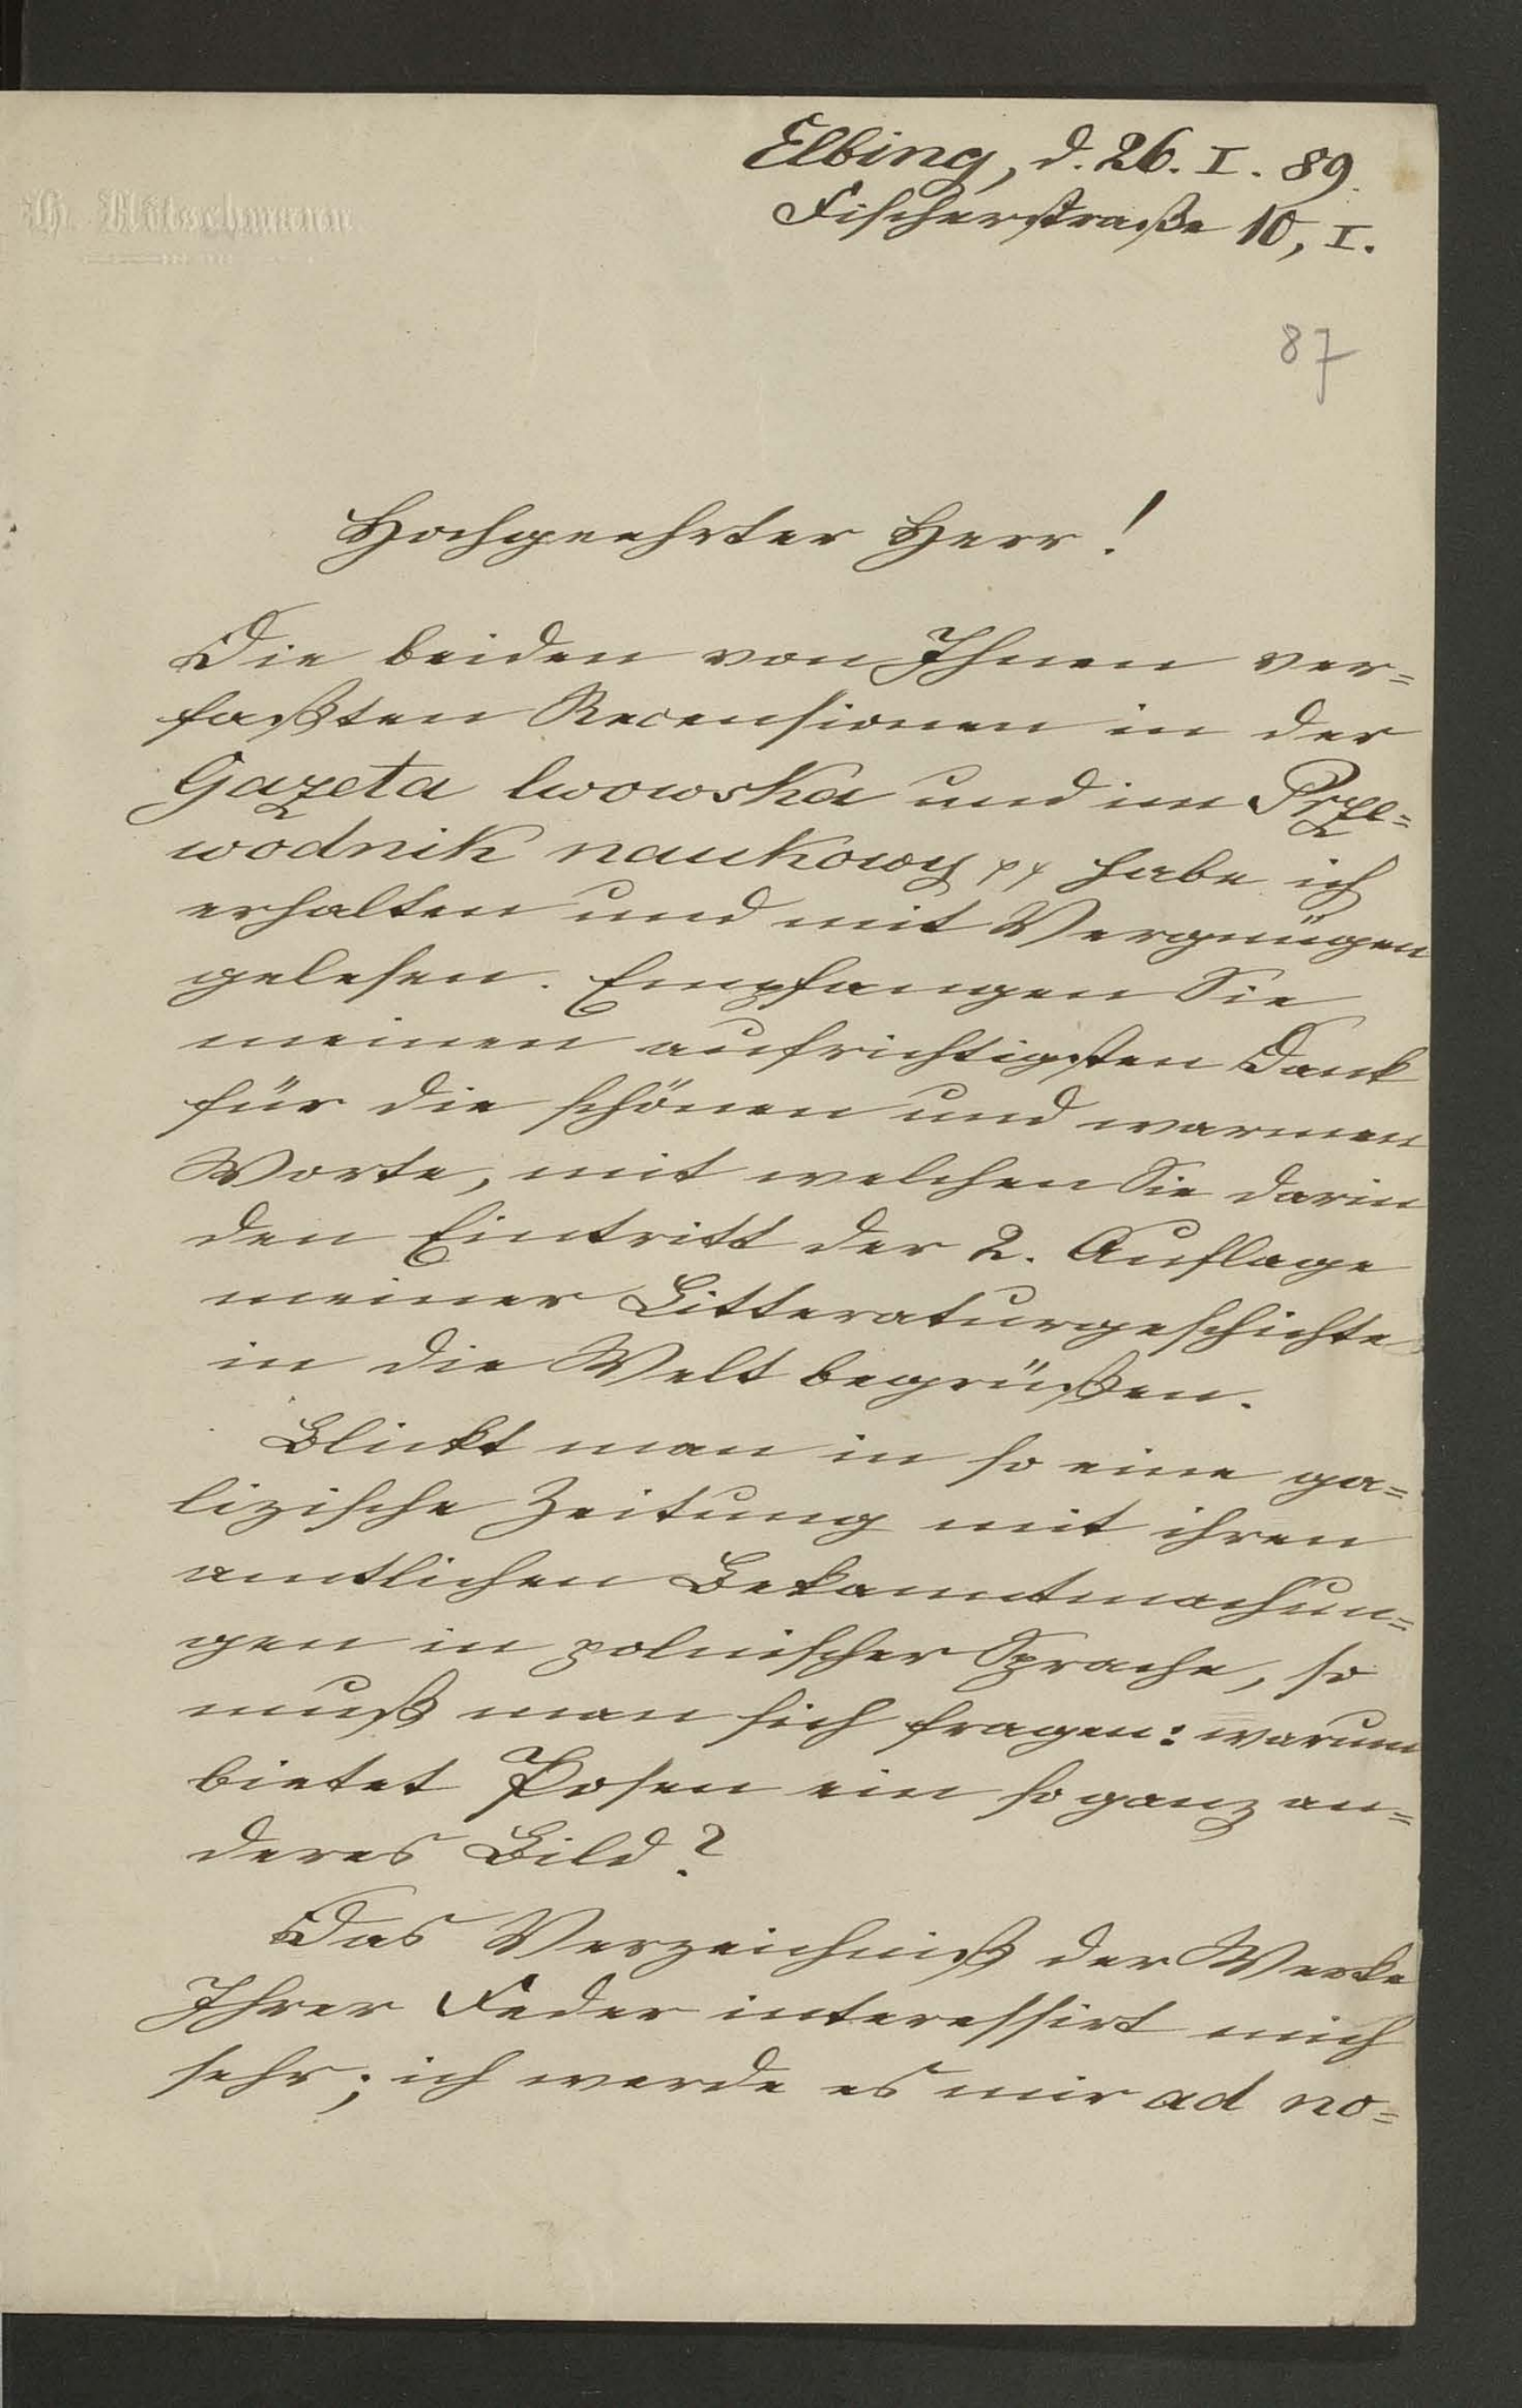 Elbing, d. 26. I. 89.
Fischerstraße 10, I.
87
Hochgeehrter Herr!
Die beiden von Ihnen ver=
faßten Recensionen in der
Gazeta lwowska und im Prze=
wodnik naukowy pp habe ich
erhalten und mit Vergnügen
gelesen. Empfangen Sie
meinen aufrichtigsten Dank
für die schönen und warmen
Worte, mit welchen Sie darin
den Eintritt der 2. Auflage
meiner Litteraturgeschichte
in die Welt begrüßen.
Blickt man in so eine ga=
lizische Zeitung mit ihren
amtlichen Bekanntmachun=
gen in polnischer Sprache, so
muß man sich fragen: warum
bietet Posen ein so ganz an=
deres Bild?
Das Verzeichniß der Werke
Ihrer Feder interessirt mich
sehr; ich werde es mir ad no=